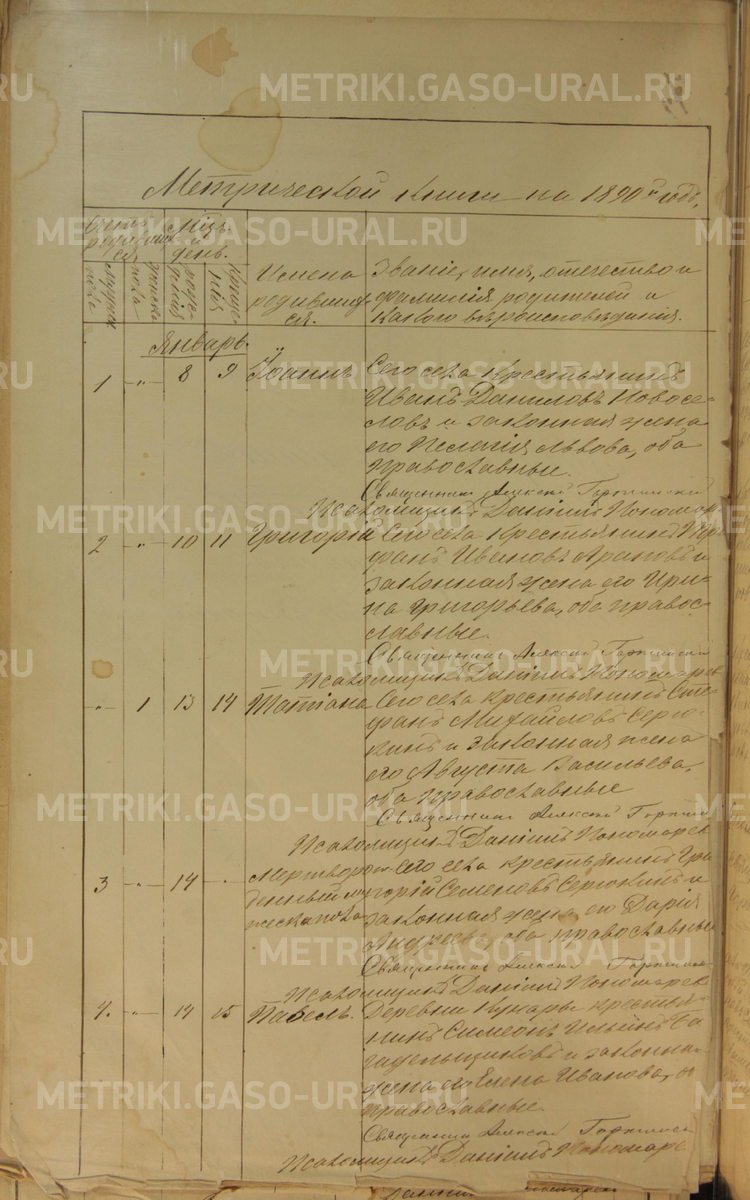 METRIKI.GASO-URAL.RU
Метрической книги на 1890й годъ,
Счетъ родившихся
Мѣсц. и день.
мужска пола
женска пола
рожденія
крещенія
Имена родившихся.
Званіе, имя, отечество и
фамилія родителей и
какого вѣроисповѣданія.
Январь.
1 " 8 9 Іоаннъ Сего села крестьянинъ
Иванъ Даниловъ Новосе-
ловъ и законная жена
его Пелагія Львова, оба
православные.
Священникъ Алексій
Псаломщикъ Даніилъ Пономарев
2 " 10 11 Григорій Сего села крестьянинъ
Ивановъ и
законная жена его Ири-
на Григорьева, оба правос-
лавные.
Священникъ Алексій
Псаломщикъ Даніилъ Пономарев
" 1 13 14 Татіана Сего села крестьянинъ Сте-
фанъ Михайловъ Серю-
кинъ и законная жена
его Августа Васильева,
оба православные
Священникъ Алексій
Псаломщикъ Даніилъ Пономарев
3 " 14 Мертворож- Сего села крестьянинъ Гри-
денный му- горій Семеновъ Серюкинъ и
жеска пола законная жена его Дарія
оба православные
Священникъ Алексій
Псаломщикъ Даніилъ Пономарев
4. " 14 15 Павелъ. Деревни Кукары крестья-
нинъ Симеонъ Ильинъ
и законна
жена его Елена Иванова, о
православные.
Священникъ Алексій
Псаломщикъ Даніилъ Пономарев